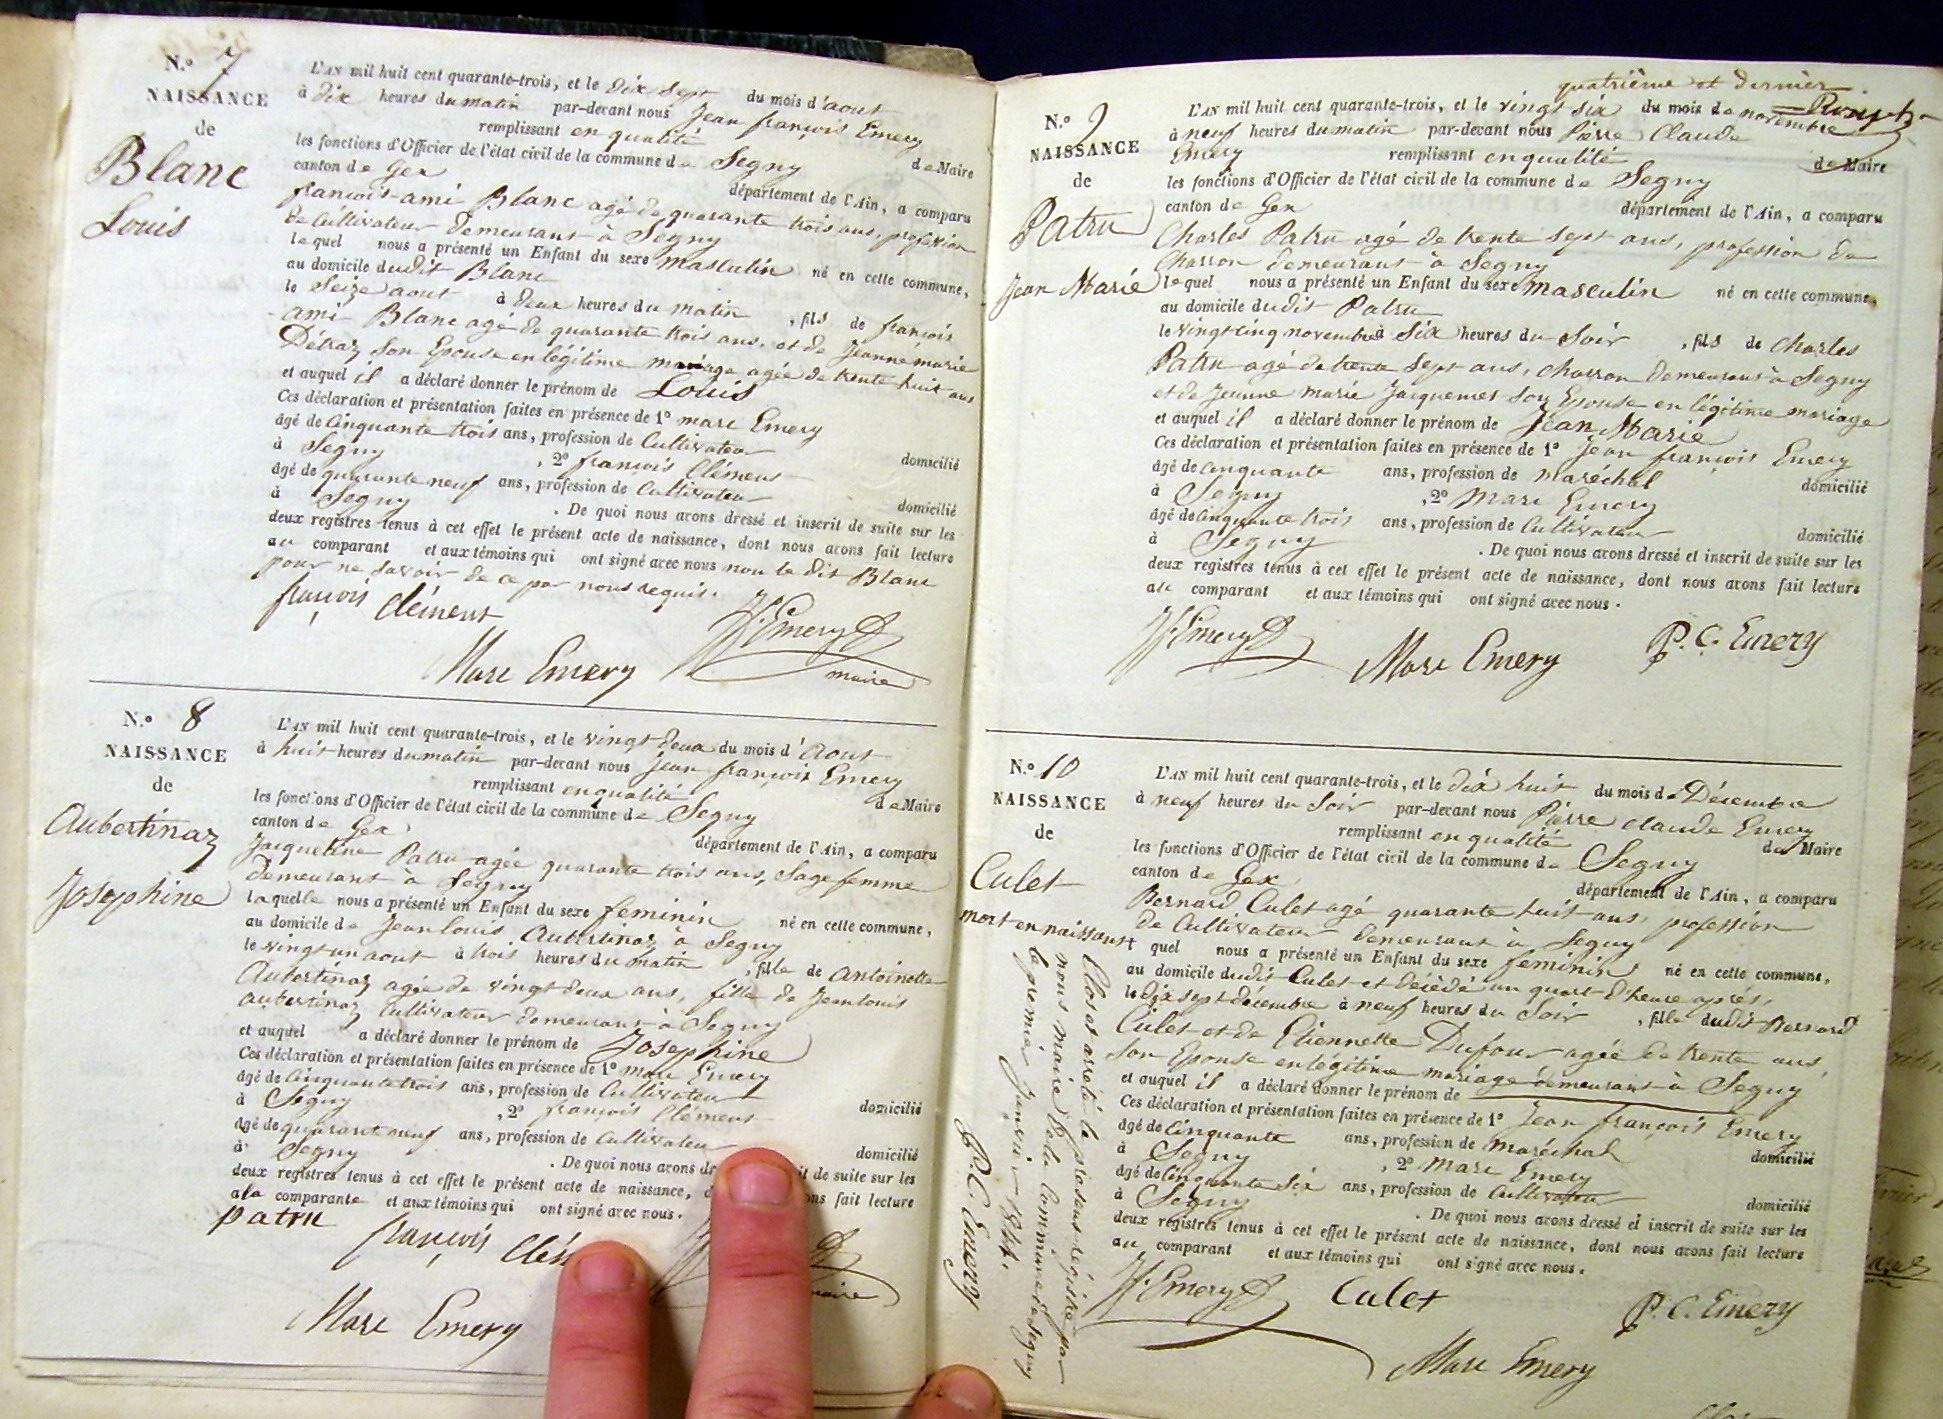 N.º 7
NAISSANCE
de
Blanc
Louis
L'AN mil huit cent quarante-trois, et le dix sept du mois d'aout
à dix heures du matin par-devant nous Jean françois Emery
remplissant en qualité de Maire
les fonctions d'Officier de l'état civil de la commune de Segny
canton de Gex département de l'Ain, a comparu
françois-ami Blanc agé de quarante trois ans, profession
de Cultivateur demeurant à Segny
lequel nous a présenté un Enfant du sexe masculin né en cette commune,
au domicile dudit Blanc
le Seize aout à deux heures du matin, fils de françois
ami Blanc agé de quarante trois ans, et de Jeanne marie
Détraz son Epouse en légitime mariage agée de trente huit ans
et auquel il a déclaré donner le prénom de Louis
Ces déclaration et présentation faites en présence de 1º marc Emery
âgé de Cinquante trois ans, profession de Cultivateur domicilié
à Segny, 2º françois Clément
âgé de quarante neuf ans, profession de Cultivateur domicilié
à Segny. De quoi nous avons dressé et inscrit de suite sur les
deux registres tenus à cet effet le présent acte de naissance, dont nous avons fait lecture
au comparant et aux témoins qui ont signé avec nous non le dit Blanc
pour ne savoir de ce par nous requis.
françois clément
Marc Emery
Jf. Emery
maire
N.º 8
NAISSANCE
de
Aubertinaz
Josephine
L'AN mil huit cent quarante-trois, et le vingt deux du mois d'Aout
à huit heures du matin par-devant nous Jean françois Emery
remplissant en qualité de Maire
les fonctions d'Officier de l'état civil de la commune de Segny
canton de Gex département de l'Ain, a comparu
Jacqueline Patru agée quarante trois ans, Sage femme
demeurant à Segny
laquelle nous a présenté un Enfant du sexe feminin né en cette commune,
au domicile de Jean louis Aubertinaz à Segny
le vingt un aout à trois heures du matin, fille de Antoinette
Aubertinaz agée de vingt deux ans, fille de Jean louis
aubertinaz Cultivateur demeurant à Segny
et auquel a déclaré donner le prénom de Josephine
Ces déclaration et présentation faites en présence de 1º marc Emery
âgé de Cinquante trois ans, profession de Cultivateur domicilié
à Segny, 2º françois Clément
âgé de quarante neuf ans, profession de Cultivateur domicilié
à Segny. De quoi nous avons it de suite sur les
deux registres tenus à cet effet le présent acte de naissance, ons fait lecture
a la comparante et aux témoins qui ont signé avec nous.
patru
françois
Marc Emery
quatrième et dernier
N.º 9
NAISSANCE
de
Patru
Jean Marie
L'AN mil huit cent quarante-trois, et le vingt six du mois de novembre
à neuf heures du matin par-devant nous Pierre Claude
Emery remplissant en qualité de Maire
les fonctions d'Officier de l'état civil de la commune de Segny
canton de Gex département de l'Ain, a comparu
Charles Patru agé de trente sept ans, profession de
Charron demeurant à Segny
lequel nous a présenté un Enfant du sexe masculin né en cette commune,
au domicile dudit Patru
le vingt cinq novembre à Six heures du Soir, fils de Charles
Patru agé de trente sept ans, charron demeurant à Segny
et de Jeanne marie Jacquemet son Epouse en légitime mariage
et auquel il a déclaré donner le prénom de Jean Marie
Ces déclaration et présentation faites en présence de 1º Jean françois Emery
âgé de cinquante ans, profession de maréchal domicilié
à Segny, 2º marc Emery
âgé de cinquante trois ans, profession de Cultivateur domicilié
à Segny. De quoi nous avons dressé et inscrit de suite sur les
deux registres tenus à cet effet le présent acte de naissance, dont nous avons fait lecture
au comparant et aux témoins qui ont signé avec nous.
Jf. Emery
Marc Emery
P. C. Emery
N.º 10
NAISSANCE
de
Culet
mort en naissant
L'AN mil huit cent quarante-trois, et le dix huit du mois de Décembre
à neuf heures du Soir par-devant nous Pierre claude Emery
remplissant en qualité de Maire
les fonctions d'Officier de l'état civil de la commune de Segny
canton de Gex département de l'Ain, a comparu
Bernard Culet agé quarante huit ans, profession
de Cultivateur demeurant à Segny
quel nous a présenté un Enfant du sexe feminin né en cette commune,
au domicile dudit Culet et décédé un quart d'heure après,
le dix sept décembre à neuf heures du Soir, fille dudit Bernard
Culet et de Etiennette Dufour agée de trente ans,
son Epouse en légitime mariage demeurant à Segny
et auquel il a déclaré donner le prénom de
Ces déclaration et présentation faites en présence de 1º Jean françois Emery
âgé de Cinquante ans, profession de maréchal domicilié
à Segny, 2º marc Emery
âgé de Cinquante Six ans, profession de Cultivateur domicilié
à Segny. De quoi nous avons dressé et inscrit de suite sur les
deux registres tenus à cet effet le présent acte de naissance, dont nous avons fait lecture
au comparant et aux témoins qui ont signé avec nous.
Jf. Emery
Culet
P. C. Emery
Marc Emery
Clos et arrêté le présent régistre par
nous maire de la Commune de Segny
le premier Janvier 1844.
P. C. Emery